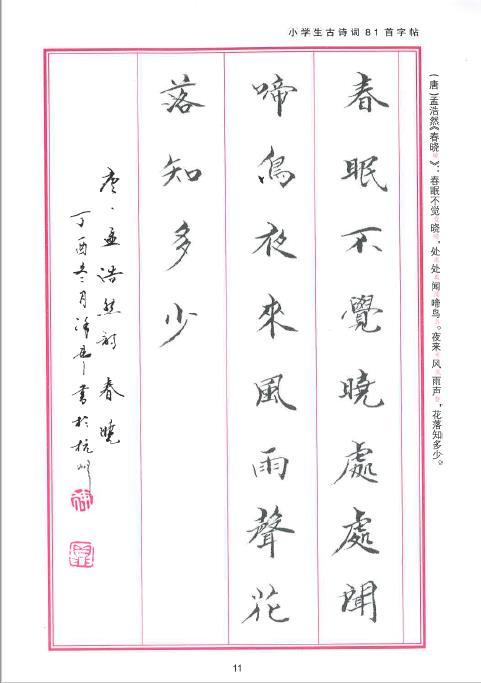 小学生古诗词81首字帖
(唐)孟浩然《春晓》：春眠不觉晓，处处闻啼鸟。夜来风雨声，花落知多少。
春眠不覺曉處處聞
啼鳥夜來風雨聲花
落知多少
唐·孟浩然詩春曉
丁酉冬月 書於杭州
11